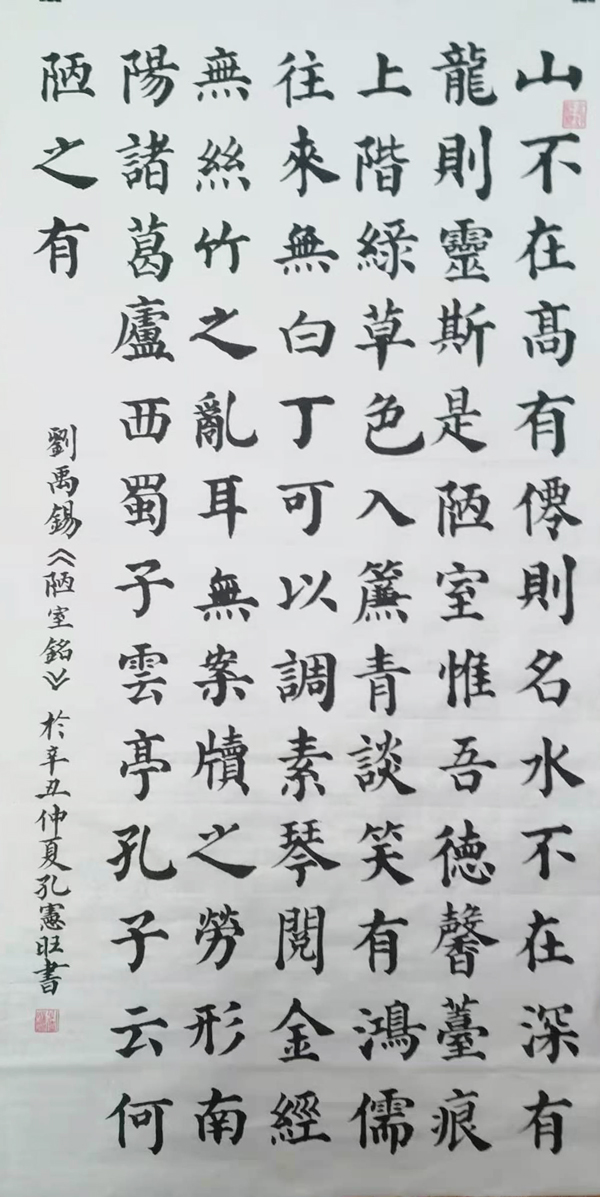 山不在髙有僊則名水不在深有
龍則靈斯是陋室惟吾德馨薹痕
上階緑草色入簾青談笑有鴻儒
往來無白丁可以調素琴閱金經
無絲竹之亂耳無案牘之勞形南
陽諸葛廬西蜀子雲亭孔子云何
陋之有
劉禹錫《陋室銘》於辛丑仲夏孔憲旺書